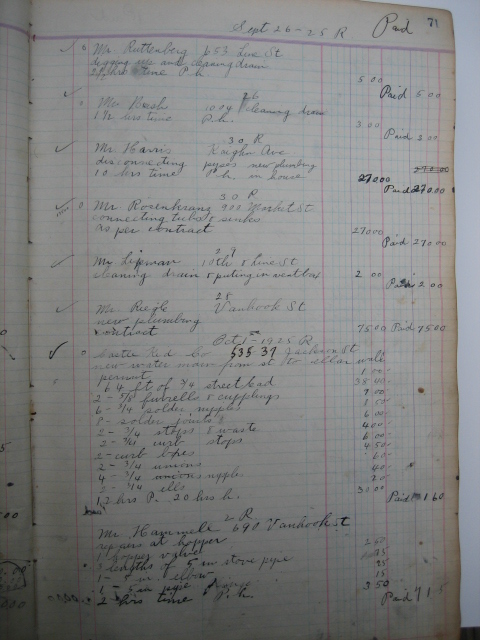 Sept 26-25 R Paid 71
Mr. Ruttenberg 653 Line St
digging up and cleaning drain
2 1/2 hrs time P.h. 5 00
Paid 5 00
26
Mr. 1004 cleaning drain
1 1/2 hrs time P.h. 3 00
Paid 3 00
30 R
Mr Harris Kaighn Ave
disconnecting new plumbing
10 hrs time P.h. in house 270 00
Paid 270 00
30 R
Mr. Rosenkranz 900 Market St
connecting tubs & sinks
as per contract 270 00
Paid 270 00
29
Mr Lipman 10th & Line St
cleaning drain & puting in 2 00
Paid 2 00
28
Mr. Riegle Vanhook St
new plumbing
contract 75 00 Paid 75 00
Oct 1st 1925 R
Co 535 37 Jackson St
new water main from st to sellar wall
permit
64 ft of 3/4 street lead 38 40
2 - 5/8 furrells & cupplings
6 - 3/4 solder nipples
8 - solder joints
2 - 3/4 stops & waste
2 - 3/4 curb stops
2 - curb boxes
2 - 3/4 unions
4 - 3/4 nipple
2 - 3/4 ells
12 hrs P. 20 hrs h. 30 00
Paid 160
2 R
Mr Hammele 690 Vanhook st
repairs at hopper
1 hopper valve
3 lengths of 5 in stove pipe
1 - 5 in elbow
1 - 5 in pipe
2 hrs time P.h. 3 50
Paid